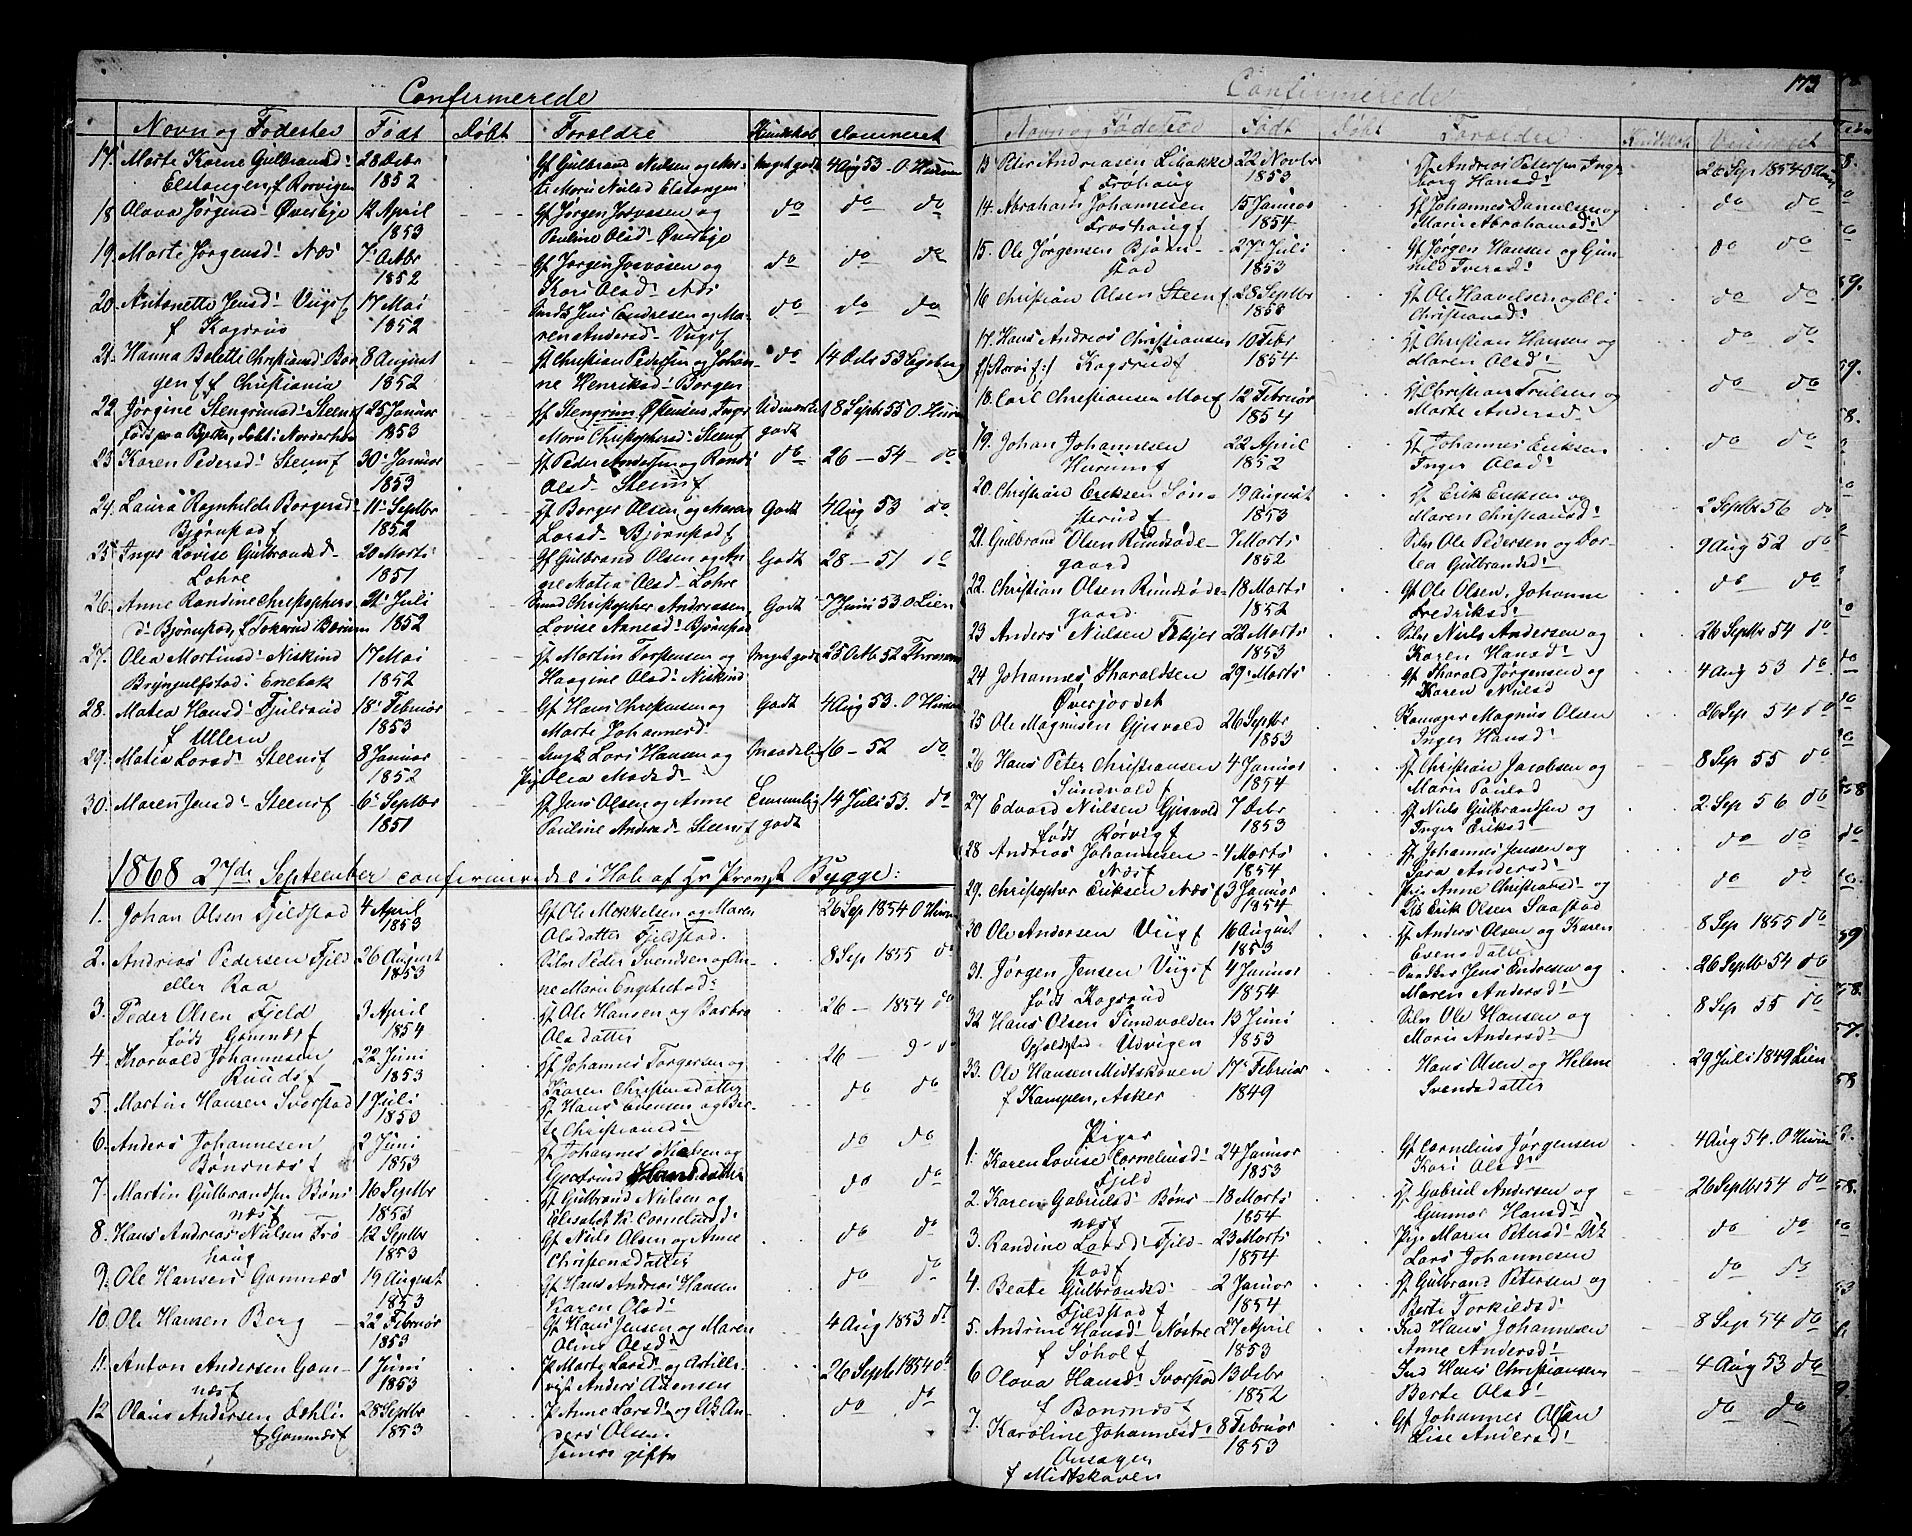 Confirmerede
Navn og Fødested Født Døbt Foreldre Kundskab Vaccineret
17. Marte Karne Gulbrandsd: 28 Debr Gf Gulbrand Nielsen og Ma- Meget godt 4 Aug 53 O Hurum
Elstangen, f Rørvigen 1852 ri Marie Nielsd Elstangen
18 Olava Jørgensd: Øverbye 12 April Gf Jørgen Josvasen og do do do
1853 Pauline Olsd: Øverbye
19. Marte Jørgensd: Næs 7 Octbr Gf Jørgen Josvasen og do do do
1852 Kari Olsd: Næs
20. Antonette Jensd: Viigsf 17 Mai Jens Endresen og Ma- do do do
f Kogsrud 1852 ren Andersd: Viigsf
21. Hanna Bolette Christiansd: Bor 8 August Gf Christian Pedersen og Johan- do 14 53 Eggsberg
gen f f Christiania 1852 ne Henriksd: Borgen
22. Jørgine Stengrimsd: Steensf 25 Januar Gf Stengrim Østensen Inger Udmærket 18 Septb 55 O Hurum
født paa Bjelke, døbt i Norderhov 1853 Marie Christophersd: Steensf godt
23. Karen Pedersd: Steensf 30 Januar Gf Peder Andersen og Randi do 26 — 54 — do
1853 Olsd: Steensf
24. Laura Ragnhilde Borgersd: 11 Septbr Gf Borger Olsen og Maren Godt 4 Aug 53 do
Bjørnstad f 1852 Larsd: Bjørnstad f
25 Inger Lovise Gulbrandsd: 20 Marts Gf Gulbrand Olsen og An- Godt 28 — 51 do
Lohre 1851 ne Matia Olsd: Lohre
26. Anne Randine Christophers 21 Juli Christopher Andreassen Godt 7 Juni 53 O Lien
d: Bjørnstad, f Tokerud Bærum 1852 Lovise Arnesd: Bjørnstad
27. Olea Martinsd: Niskind 17 Mai Gf Martin Torstensen og Meget godt 25 Octb 52
Brynjulfstad i Enebak 1852 Haagine Olsd: Niskind
28. Matea Hansd: Fjulsrud 18 Februar Gf Hans Christensen og Godt 4 Aug 53. O Hurum
f Ullern 1853 Marte Johannesd:
29. Matia Larsd: Steensf 8 Januar Lars Hansen og Maadelig 16 — 52 do
1852 Pig Olea Madsd:
30. Maren Jensd: Steensf 6 Septbr Gf Jens Olsen og Anne Temmelig 14 Juli 53. do
1851 Pauline Andersd: Steensf godt
1868 27de September confirmerede i Hole af Hr Provst Bygge:
1. Johan Olsen Fjeldstad 4 April Gf Ole Mikkelsen og Maren 26 Sep 1854 O Hurum
1853 Olsdatter Fjeldstad.
2. Andreas Pedersen Fjeld 26 August Selv Peder Svendsen og An- 8 Sep 1855 do
eller Raa 1853 ne Marie Engebretsd:
3. Peder Olsen Fjeld 3 April Gf Ole Hansen og Barbra 26 — 1854 do
født Gomnæs f 1854 Olsdatter
4. Thorvald Johannesen 22 Juni Gf Johannes Torgersen og 26 — 9 do
Ruudsf 1853 Karen Christensdatter
5. Martin Hansen Svarstad 1 Juli Gf Hans Evensen og Be- do do
1853 te Christiansd:
6. Anders Johannesen 2 Juni Gf Johannes Nielsen og do do
Bønsnæs f 1853 Gjertrud Hansdatter
7. Martin Gulbrandsen Bøns 16 Septbr Gf Gulbrand Nielsen og do do
næsf 1853 Elisabet K. Corneliusd:
8. Hans Andreas Nielsen Frø 12 Septbr Gf Niels Olsen og Anne do do
haug 1853 Christensdatter
9. Ole Hansen Gomnæs 19 August Gf Hans Andreas Hansen do do
1853 Karen Olsd:
10. Ole Hansen Berg 22 Februar Gf Hans Jensen og Maren 4 Aug 1853 do
1853 Oline Olsd:
11. Anton Andersen Gom- 1 Juni P Marte Larsd: og Artille- 26 Septb 1854 do
næsf 1853 rist Anders Adensen
12. Olaus Andersen Dehli 28 Septbr P Anne Larsd: og An- do do
f Gomnæsf 1853 ders Olsen.
gifte
Confirmerede 173
Navn og Fødested Født Døbt Foreldre Kundskab Vaccineret
13. Peter Andreasen Libakke 22 Novbr Gf Andreas Petersen Inge 26 Sep 1854 O Hurum
f Frøhaug 1853 borg Hansd:
14. Abraham Johannesen 15 Januar Gf Johannes Danielsen og do do
Frøshaug f 1854 Marie Abrahamsd:
15. Ole Jørgensen Bjørn- 27 Juli Gf Jørgen Hansen og Gun- do do
stad 1853 hild Iversd:
16 Christian Olsen Steensf 28 Septbr Gf Ole Haavelsen og Eli do do
1853 Christiansd:
17. Hans Andreas Christiansen 10 Febr Gf Christian Hansen og do do
Kogsrud f 1854 Maren Olsd:
18. Carl Christiansen Moe f 12 Februar Gf Christian Truelsen og do do
1854 Marte Andersd:
19. Johan Johannesen 22 April Gf Johannes Eriksen do do
Hurum f 1852 Inger Olsd:
20. Christian Eriksen Søn- 19 August Gf Erik Eriksen og 2 Septbr 56 do
sterud f 1853 Maren Christiansd:
21. Gulbrand Olsen Rundsøde- 7 Marts Selv Ole Pedersen og Dor- 9 Aug 52 do
gaard 1852 tea Gulbrandsd:
22. Christian Olsen Rundsøde- 18 Marts Gf Ole Olsen, Johanne do do
gaard 1852 Fredriksd:
23 Anders Nielsen Fekjer 22 Marts Selv Niels Andersen og 26 Septbr 54 do
1853 Karen Hansd:
24 Johannes Tharaldsen 29 Marts Gf Tharald Jørgensen 4 Aug 53 do
Øverjordet Karen Nielsd
25 Ole Magnusen Gjesvold 26 Septbr Magnus Olsen 26 Sep 54 do
1853 Inger Hansd:
26 Hans Peter Christiansen 4 Januar Gf Christian Jacobsen og 8 Sep 55 do
Sundvold f 1854 Marie Paulsd
27 Edvard Nielsen Gjesvold 7 Debr Gf Niels Gulbrandsen og 2 Sep 56 do
født Rørvig f 1853 Inger Eriksd:
28 Andreas Johannesen 4 Marts Gf Johannes Jensen og do do
Næsf 1854 Sara Andersd:
29. Christopher Eriksen Næs f 3 Januar Pige Anne Christensd: og do do
1854 Erik Olsen Saastad
30 Ole Andersen Viig f 16 August Gf Anders Olsen og Karen 8 Sep 1855 do
1853 Evensdatter
31. Jørgen Jensen Viigsf 4 Januar Jens Endresen og 26 Septbr 54 do
født Kogsrud 1854 Maren Andersd:
32 Hans Olsen Sundvolden 13 Juni Selv Ole Hansen og 8 Sep 55 do
Utvigen 1853 Marie Andersd:
33. Ole Hansen Midtskoven 17 Februar Hans Olsen og Helene 29 Juli 1849 Lien
f Kampen, Asker 1849 Svendsdatter
Piger
1. Karen Lovise Corneliusd: 24 Januar Gf Cornelius Jørgensen 4 Aug 54. O Hurum
Fjeld 1853 Kari Olsd:
2. Karen Gabrielsd: Bøns 18 Marts Gf Gabriel Andersen og 26 Septbr 54 do
næsf 1854 Gunnor Hansd:
3. Randine Larsd: Fjeld- 23 Marts Pige Maren Petersd: do do
stad f 1854 Lars Johannesen
4. Beate Gulbrandsd: 2 Januar Gf Gulbrand Petersen og do do
Fjeldstad f 1854 Berte Torkildsd:
5. Andrine Hansd: Nøstre 27 April Ind Hans Johannesen 8 Sep 54 do
f Søhol f 1853 Anne Andersd:
6 Olava Hansd: Svarstad 13 Debr Ind Hans Christiansen 4 Aug 53 do
f Bønsnæs f 1852 Berte Olsd:
7. Karoline Johannesd: 8 Februar Gf Johannes Olsen do do
1853 Lise Andersd:
f Midtskoven